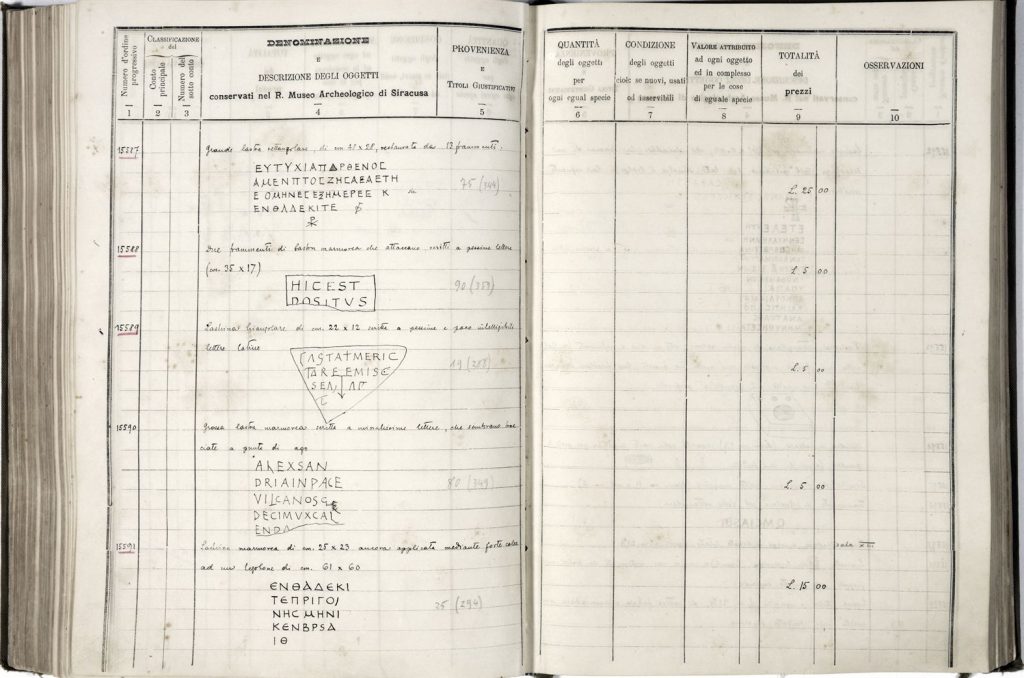 Numero d'ordine progressivo
CLASSIFICAZIONE
del
Conto principale
Numero del sotto conto
DENOMINAZIONE
E
DESCRIZIONE DEGLI OGGETTI
conservati nel R. Museo Archeologico di Siracusa
PROVENIENZA
E
TITOLI GIUSTIFICATIVI
1 2 3 4 5
15587
Grande lastra rettangolare, di cm. 41 x 28, restaurata da 12 frammenti.
ΕΥΤΥΧΙΑΠΑΡΘΕΝΟС
ΑΜΕΝΠΤΟСΖΗСΑСΑΕΤΗ
ΕΟΜΗΝΕСΕΞΗΜΕΡΕС Κ
ΕΝΘΑΔΕΚΙΤΕ
75 (344)
15588
Due frammenti di lastra marmorea che attaccano, scritti a pessime lettere
(cm. 35 x 17)
HIC EST
POSITVS
90 (359)
15589
Lastrina triangolare di cm. 22 x 12 scritta a pessime e poco intelligibili
lettere latine
CASTATMERIC
TAREEMISE
19 (288)
15590
Grossa lastra marmorea scritta a minutissime lettere, che sembrano
a punta di ago
ALEXSAN
DRIAINPACE
VILCANOSC
DECIMVXCAL
ENDA
80 (349)
15591
Lastrina marmorea di cm. 25 x 23 ancora applicata mediante forte calce
ad un tegolone di cm. 61 x 60
ΕΝΘΑΔΕΚΙ
ΤΕΠΡΙΓΟ
ΝΗСΜΗΝΙ
ΚΕΝΒΡSΔ
ΙΘ
25 (294)
QUANTITÀ
degli oggetti
per
ogni egual specie
CONDIZIONE
degli oggetti
cioè: se nuovi, usati
od inservibili
VALORE ATTRIBUITO
ad ogni oggetto
ed in complesso
per le cose
di eguale specie
TOTALITÀ
dei
prezzi
OSSERVAZIONI
6 7 8 9 10
L. 25 00
L. 5 00
L. 5 00
L. 5 00
sala XIII
L. 15 00